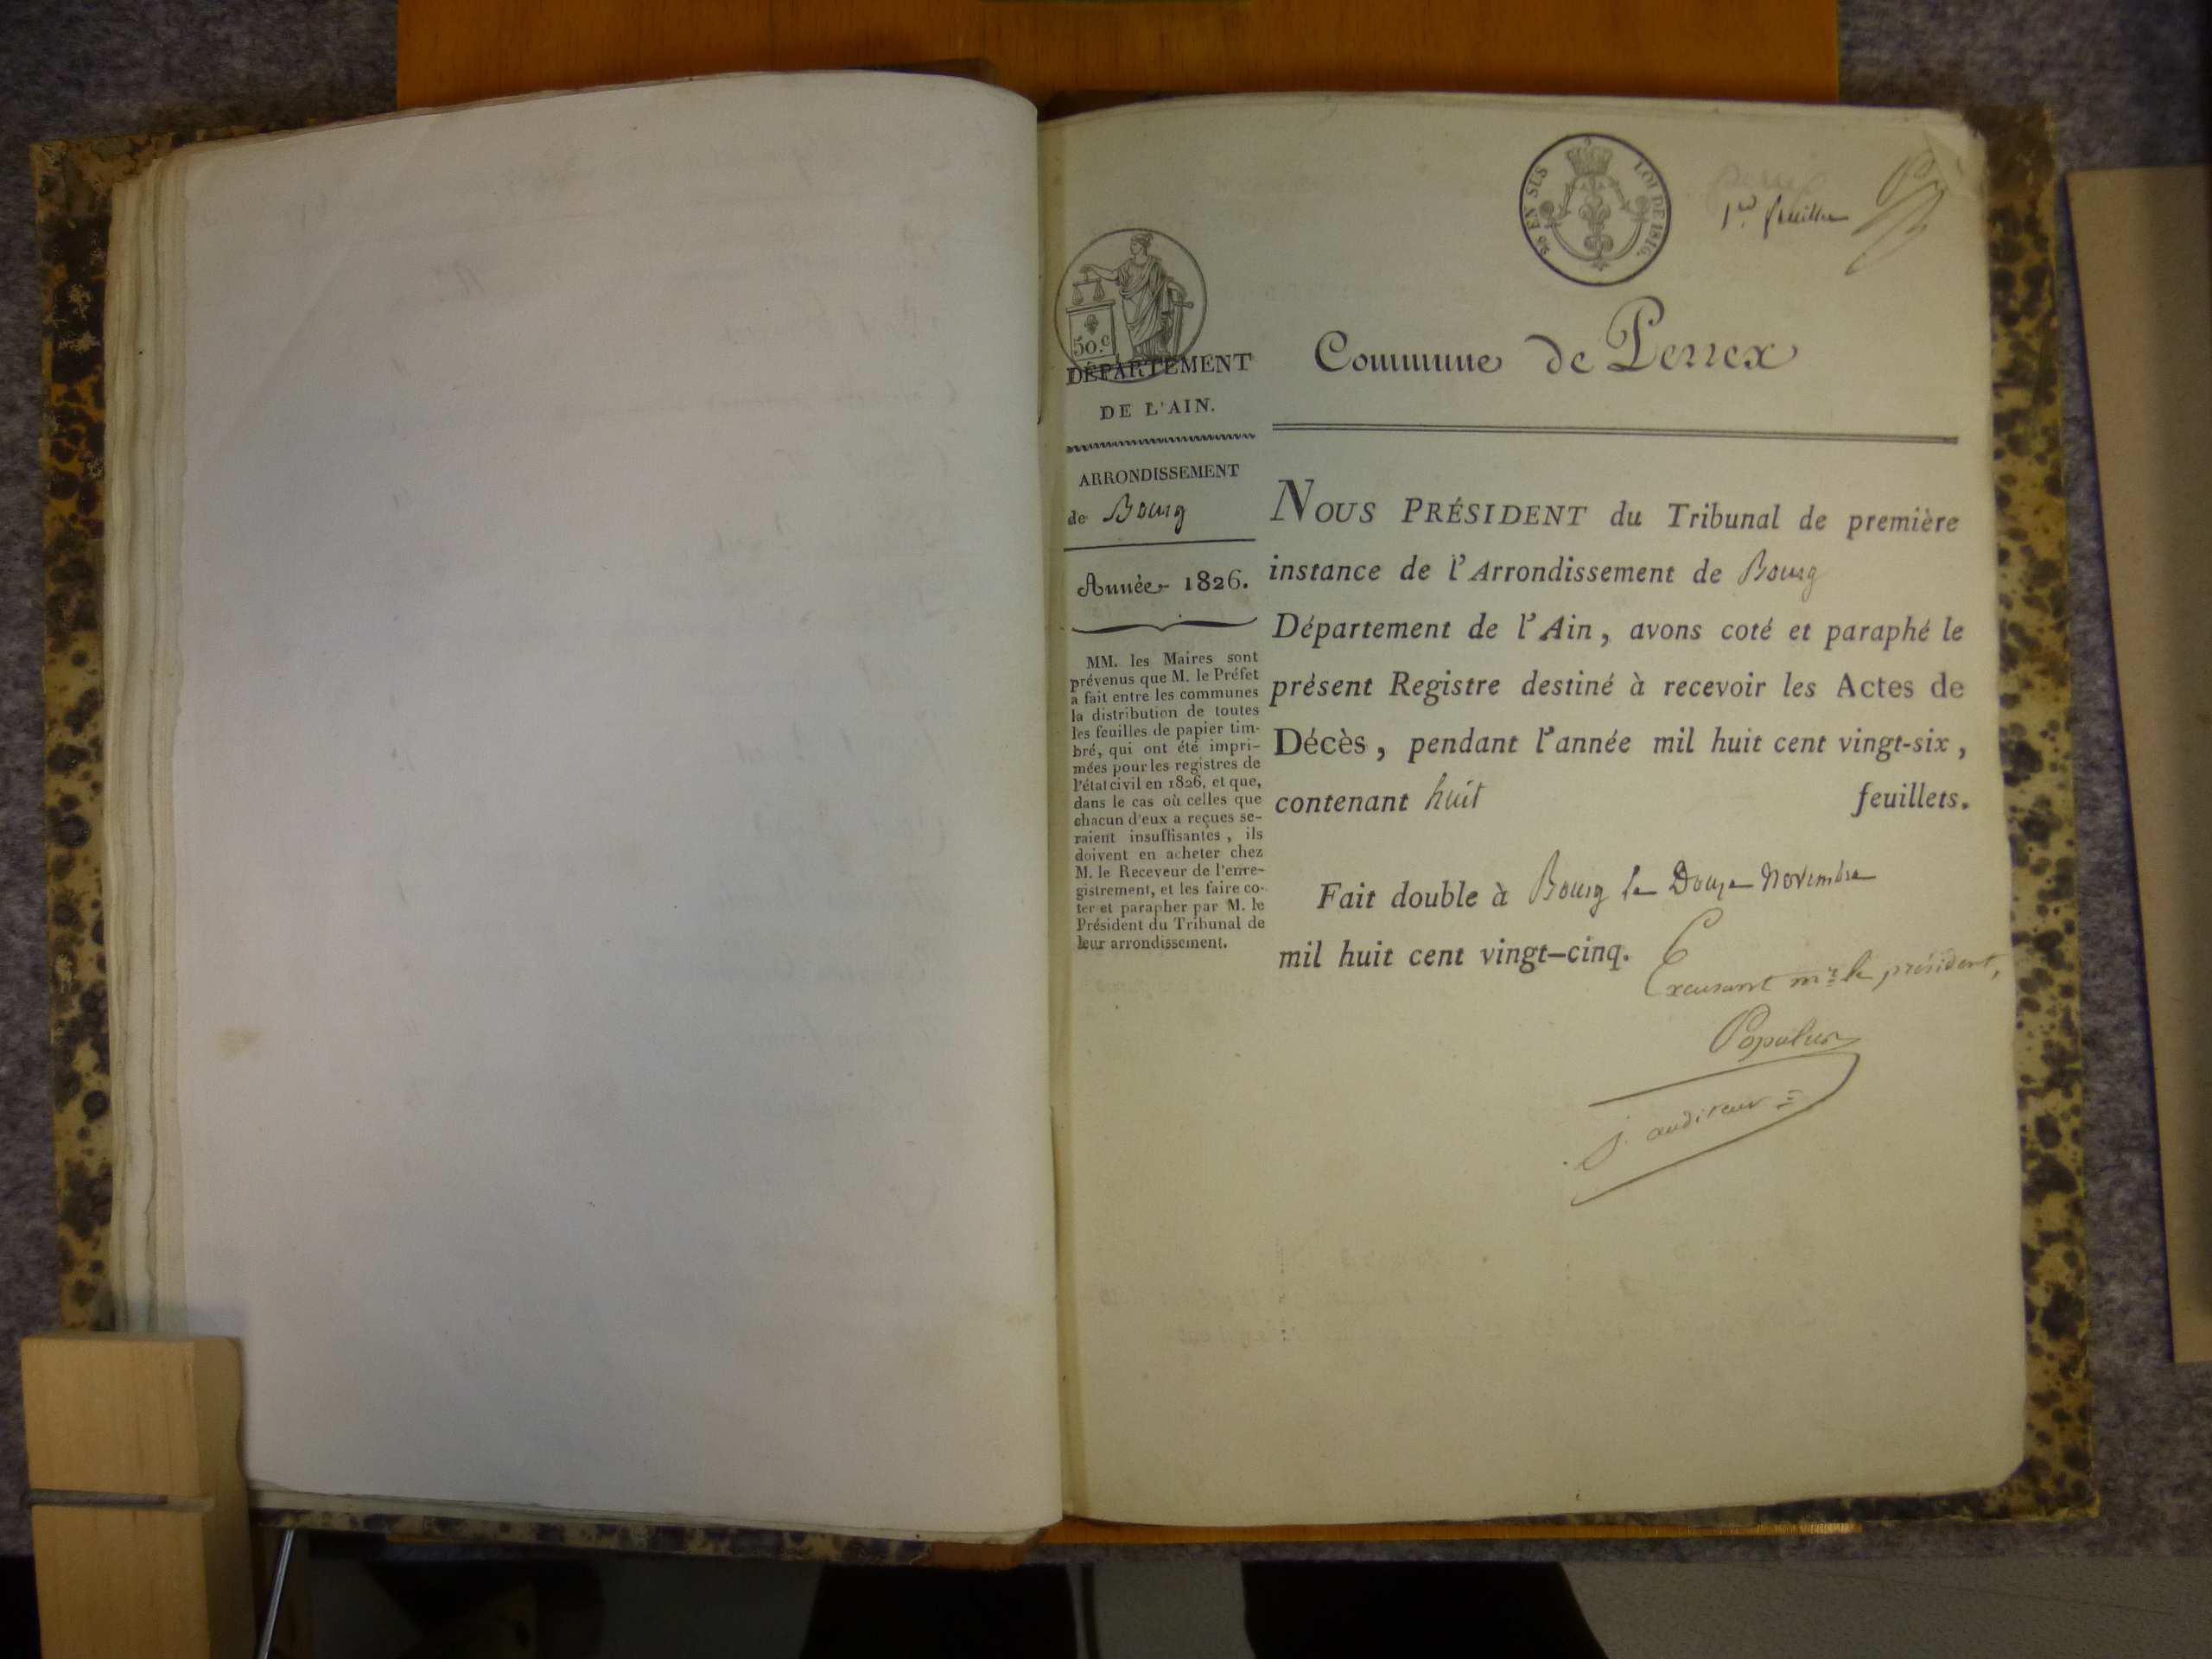 20 EN SUS LOI DE 1816.
1er feuillet
50.c
DÉPARTEMENT
DE L'AIN.
Commune de Perrex
ARRONDISSEMENT
de Bourg
Année 1826.
MM. les Maires sont
prévenus que M. le Préfet
a fait entre les communes
la distribution de toutes
les feuilles de papier tim-
bré, qui ont été impri-
mées pour les registres de
l'état civil en 1826, et que,
dans le cas où celles que
chacun d'eux a reçues se-
raient insuffisantes, ils
doivent en acheter chez
M. le Receveur de l'enre-
gistrement, et les faire co-
ter et parapher par M. le
Président du Tribunal de
leur arrondissement.
NOUS PRÉSIDENT du Tribunal de première
instance de l'Arrondissement de Bourg
Département de l'Ain, avons coté et paraphé le
présent Registre destiné à recevoir les Actes de
Décès, pendant l'année mil huit cent vingt-six,
contenant huit feuillets.
Fait double à Bourg le Douze Novembre
mil huit cent vingt-cinq.
Excusant mr le président,
Populus
j. auditeur